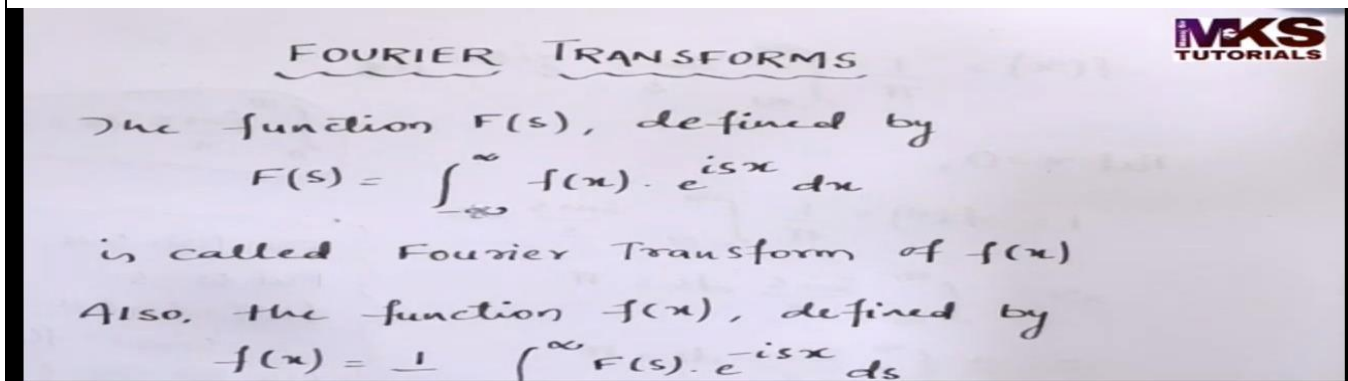 MKS
TUTORIALS
FOURIER TRANSFORMS
The function F(s), defined by
F(s) = ∫_{-∞}^{∞} f(x) . e^{isx} dx
is called Fourier Transform of f(x)
Also, the function f(x), defined by
f(x) = 1 ∫^{∞} F(s). e^{-isx} ds